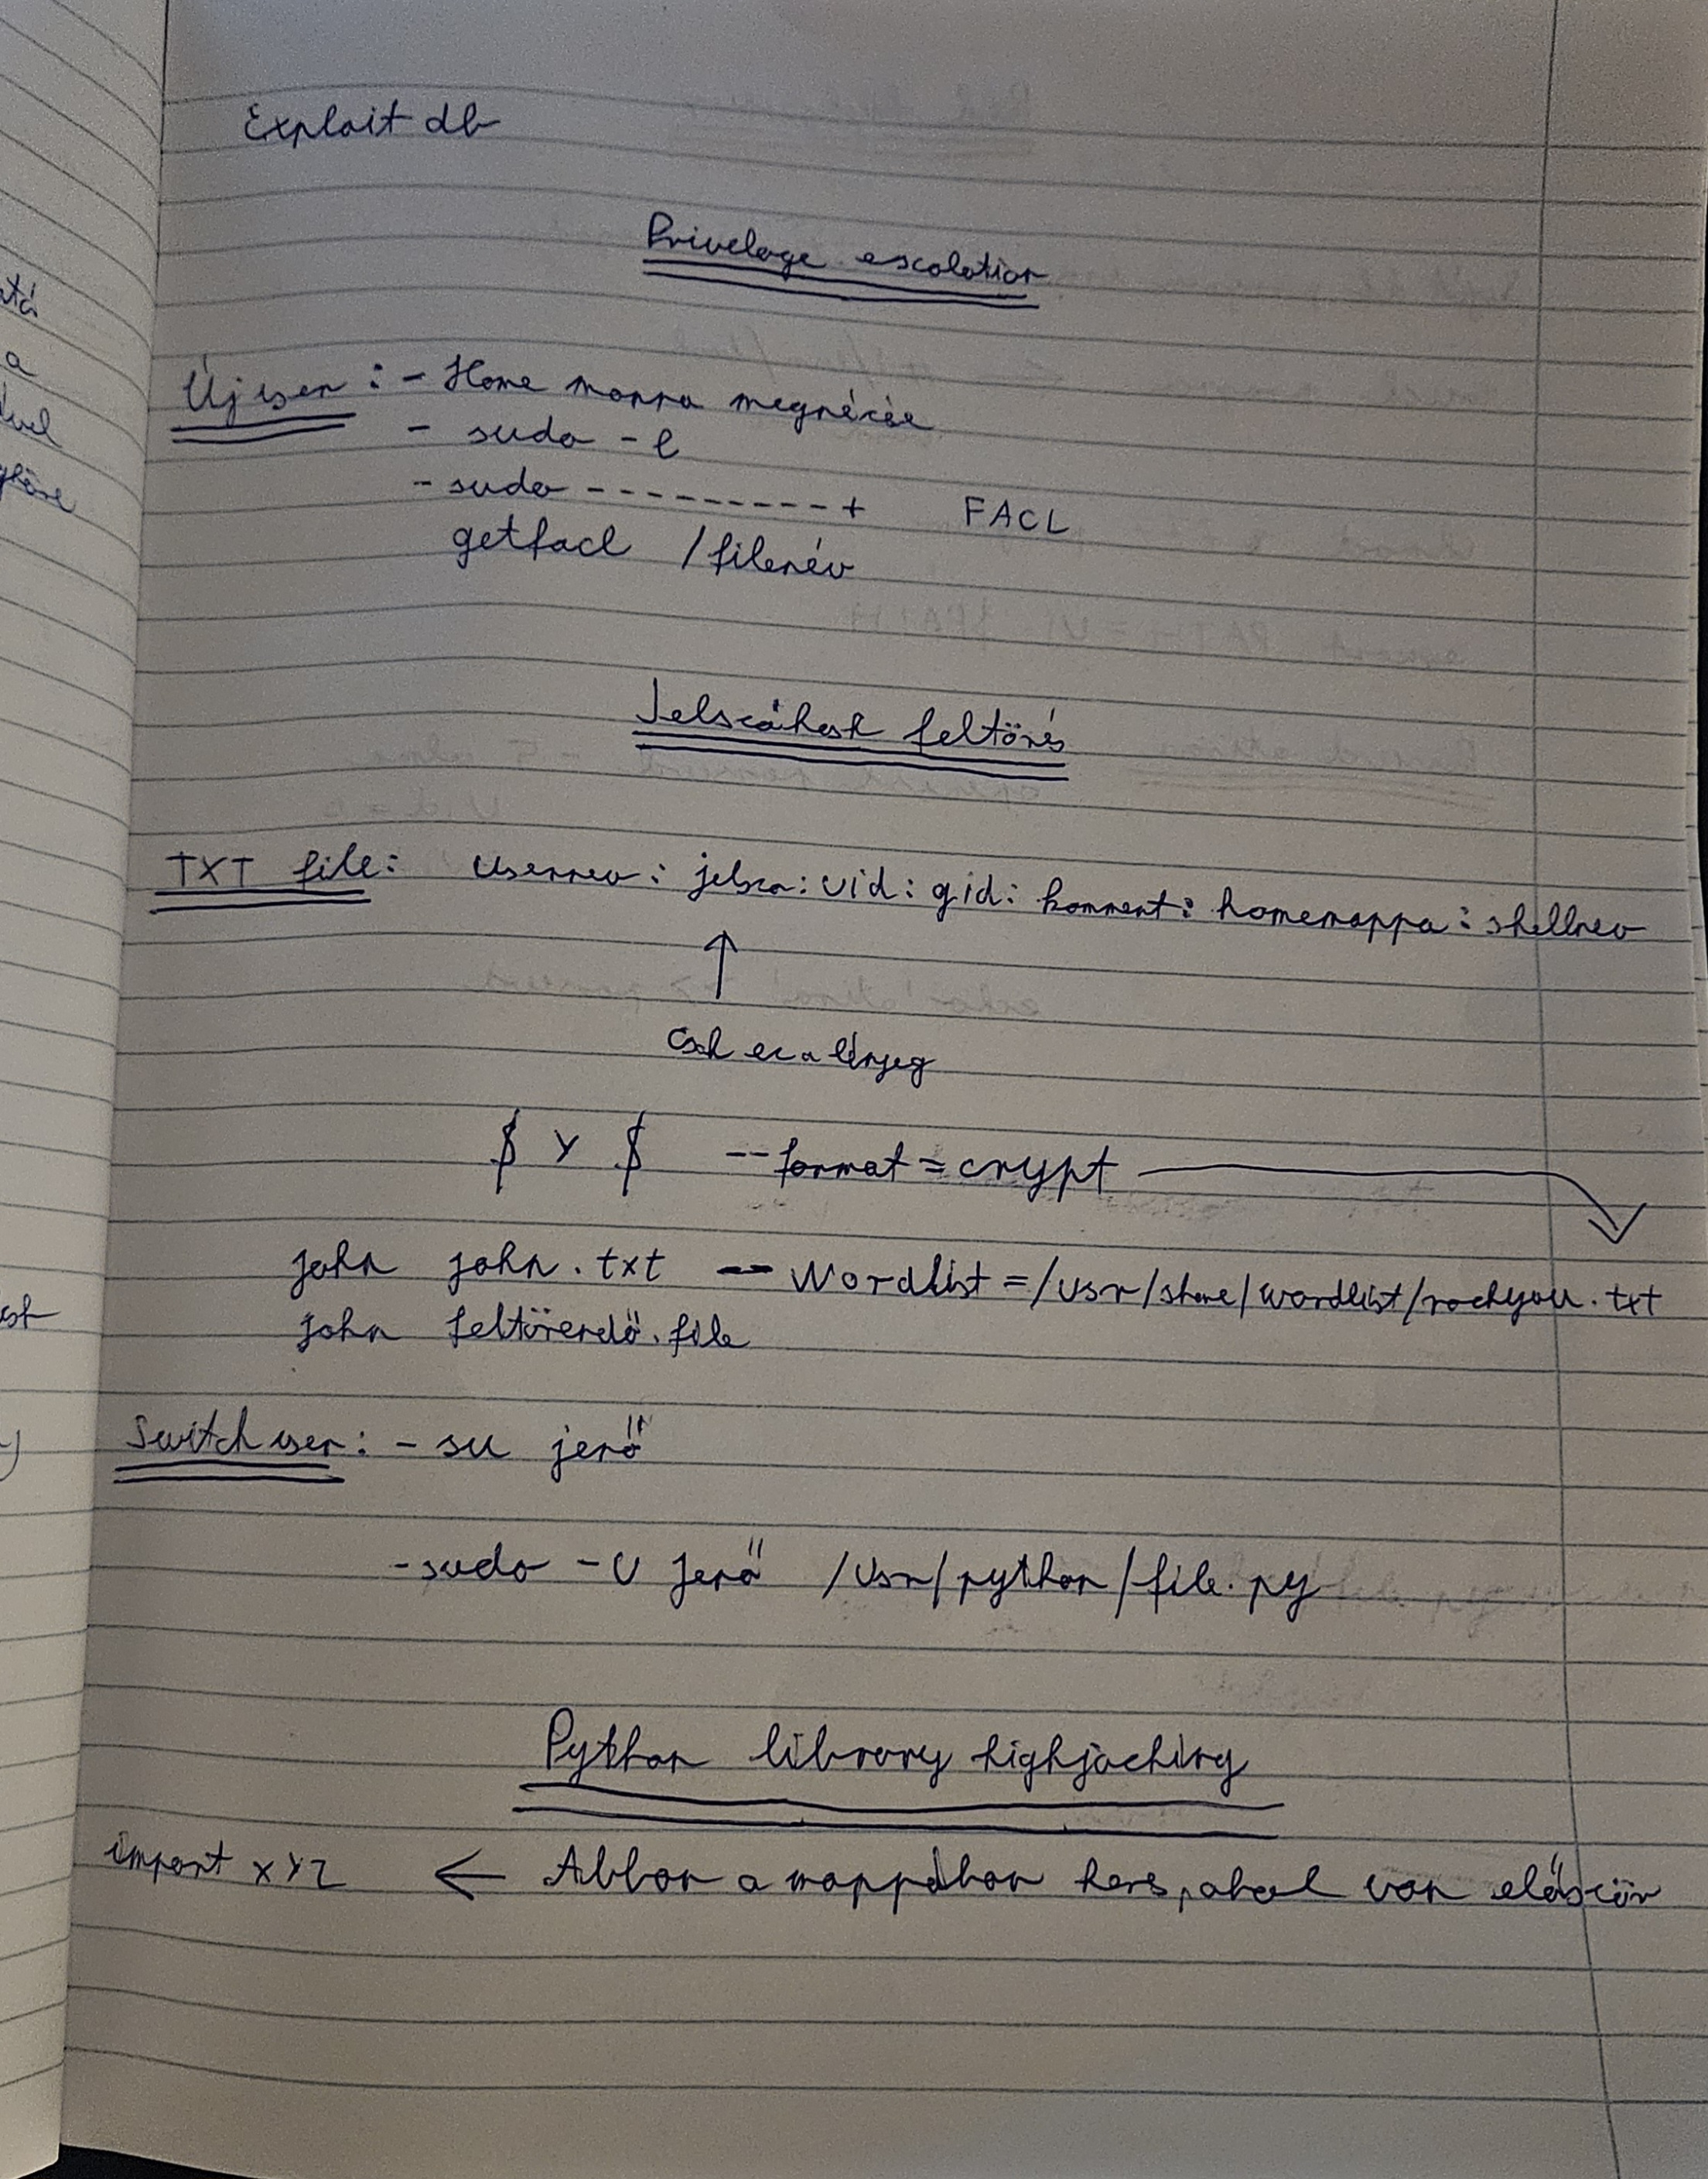 Exploit db
Privelage escalation
Új user : - Home mappa megnézése
- sudo -l
- sudo - - - - - - - - - + FACL
getfacl /filenév
Jelszóhash feltörés
TXT file: usernev : jelszo : uid : gid : komment : homemappa : shellnev
Csak ez a lényeg
$ y $ --format = crypt
john john.txt -- Wordlist =/usr/share/wordlist/rockyou.txt
john feltörendő.file
Switch user : - su jenő
- sudo -U Jenő /usr/python/file.py
Python library highjacking
import XYZ ← Abban a mappában keres, ahol van először